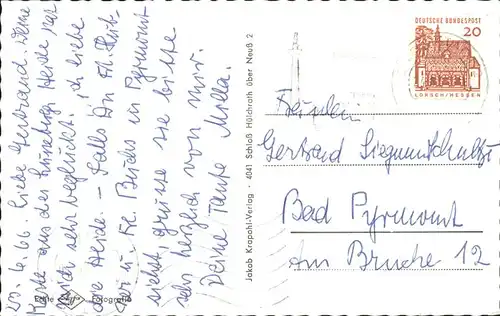 23. 4. 66. Liebe Gertraud. Deine
Karte aus der Lüneburg. Heide hat
mich sehr beglückt. Ich liebe
die Heide. – Falls Du Frl.
der u. Fr. Buchs in Pyrmont
siehst, grüsse sie bitte
sehr herzlich von mir.
Deine Tante Molla.
Echte Fotografie
Jakob Krapohl-Verlag · 4041 Schloß Hülchrath über Neuß 2
DEUTSCHE BUNDESPOST
20
LORSCH/HESSEN
Fräulein
Gertrud Siegmund Schultze
Bad Pyrmont
Am Bruche 12